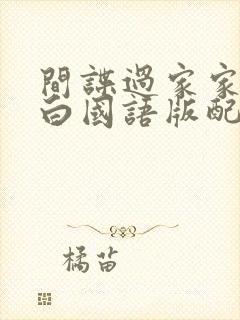 間諜過家家
白國語版配
橘苗